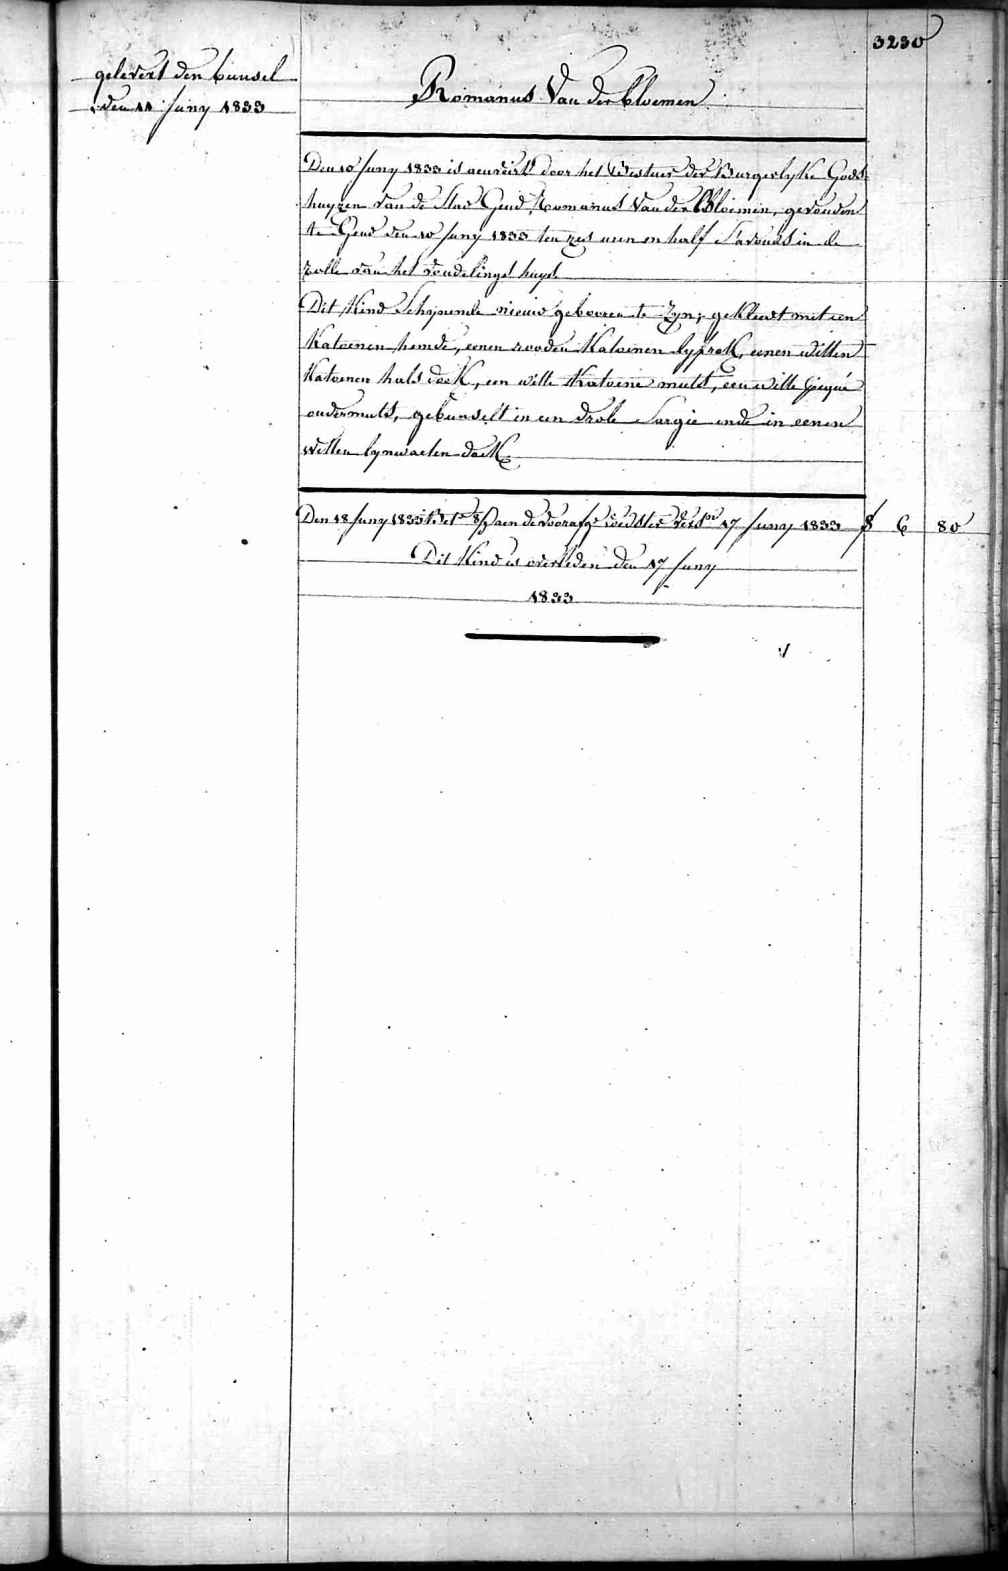 3230
gelevert den bunsel
den 11 Juny 1833
Romanus Van der bloemen
Den 10 Juny 1833 is aenveirt door het Bestuer der Burgerlyke Gods-
huyzen van de Stad Gend, Romanus Van der Bloemen, gevonden
te Gend den 10 Juny 1833 ten zes uren en half s'avonds in de
rolle van het vondelings huys
Dit Kind Schynende nieuw gebooren te Zyn, gekleedt met een
Katoenen hemde, eenen rooden Katoenen lyfrok, eenen witten
Katoenen hals doek, een witte Katoene muts, een witte piqué
ondermuts, gebunselt in een sargie ende in eenen
witten lynwaeten doek
Den 18 Juny 1833 aen de voedster 17 Juny 1833 f 6 80
Dit Kind is overleden den 17 Juny
1833